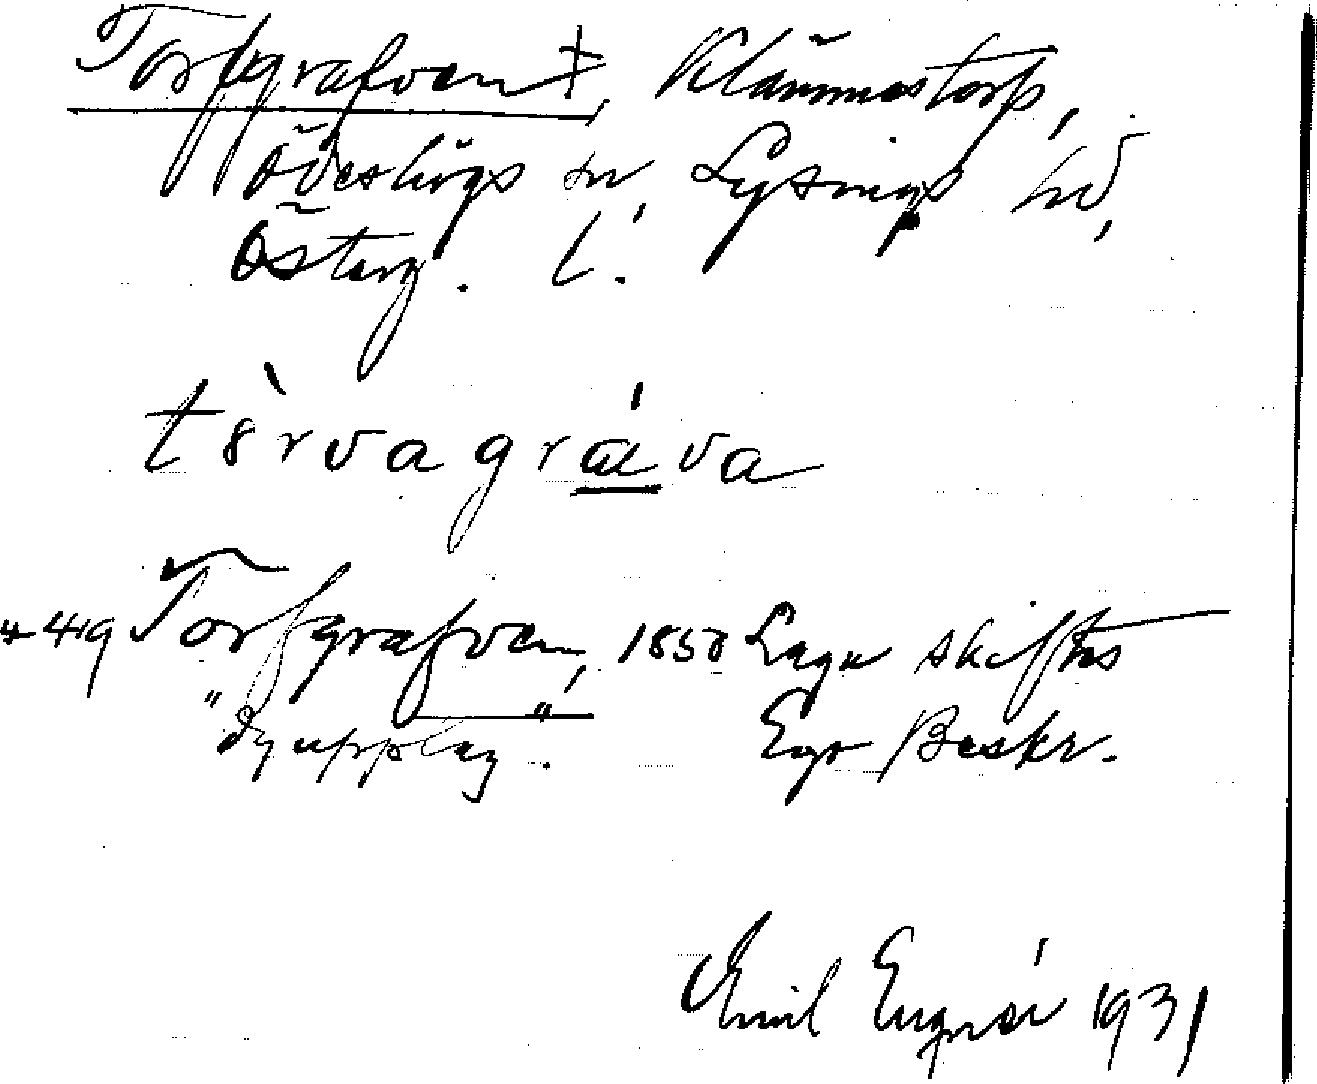 Torfgrafven ‡, Klämmestorp,
Ödeshögs sn, Lysings hd,
Österg. l.
tòrvagráva
449 Torfgrafven, 1858 Laga skiftes
"dyupplag". Ego Beskr.
Emil Engnér 1931